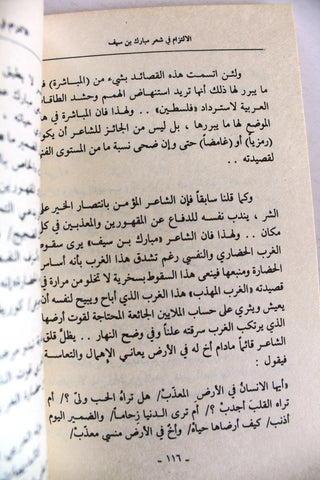 الالتزام في شعر مبارك بن سيف
ولئن اتسمت هذه القصائد بشيء من (المباشرة) فـ
ما يبرر لها ذلك أنها تريد استنهاض الهمم وحشد الطاقات
العربية لاسترداد «فلسطين» .. ولهذا فان المباشرة في هـ
الموضع لها ما يبررها ، بل ليس من الجائز للشاعر أن يكو
(رمزياً) أو (غامضاً) حتى وإن ضحى نسبة ما من المستوى الفني
لقصيدته .
وكما قلنا سابقاً فإن الشاعر المؤمن بانتصار الخير على
الشر ، يندب نفسه للدفاع عن المقهورين والمعذبين في كل
مكان .. ولهذا فان الشاعر «مبارك بن سيف» يرى سقوط
الغرب الحضاري والنفسي رغم تشدق هذا الغرب بأنه أساس
الحضارة ومنبعها فينعى هذا السقوط بسخرية لا تخلو من مرارة في
قصيدته «الغرب المهذب» هذا الغرب الذي أباح ويبيح لنفسه أن
يعيش ويثري على حساب الملايين الجائعة المحتاجة لقوت أرضها
الذي يرتكب الغرب سرقته علناً وفي وضح النهار .. يظلّ قلق
الشاعر قائماً مادام أخ له في الأرض يعاني الإهمال والتعاسة
فيقول :
وأيها الانسانُ في الأرضِ المعذبْ/ هل تراهُ الحب ولىّ ؟/ أم
تراه القلبَ أجدبْ ؟/ أم ترى الدنيا زِحاماً/ والضمير اليوم
أذنب/ كيف أرضاها حياةً/ وأخٌ في الأرض منسي معذبْ/
- ١١٦ -